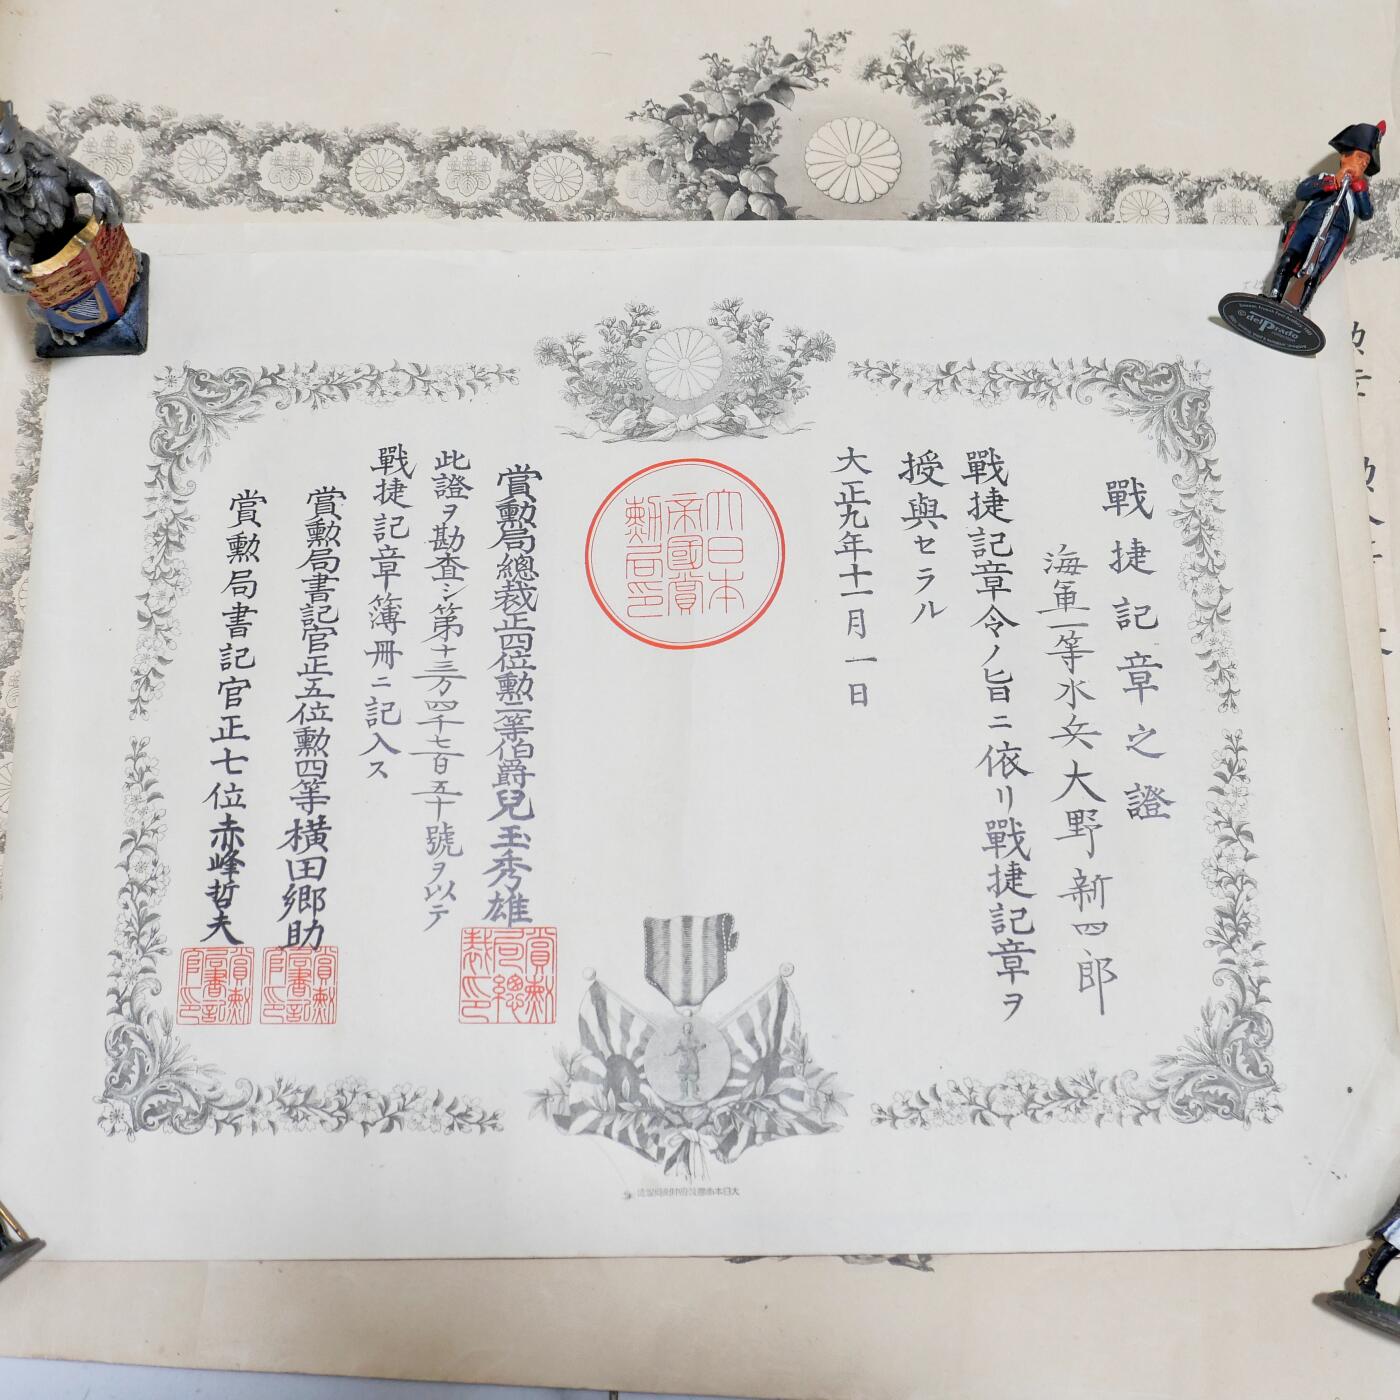 戰捷記章之證
海軍一等水兵大野新四郎
戰捷記章令ノ旨ニ依リ戰捷記章ヲ
授與セラル
大正九年十一月一日
大日本
帝國賞
勲局印
賞勲局總裁正四位勲二等伯爵兒玉秀雄
賞勲
局總
裁印
此證ヲ勘査シ第十三万四千七百五十號ヲ以テ
戰捷記章簿冊ニ記入ス
賞勲局書記官正五位勲四等横田郷助
賞勲
局書記
官印
賞勲局書記官正七位赤峰哲夫
賞勲
局書記
官印
delPrado